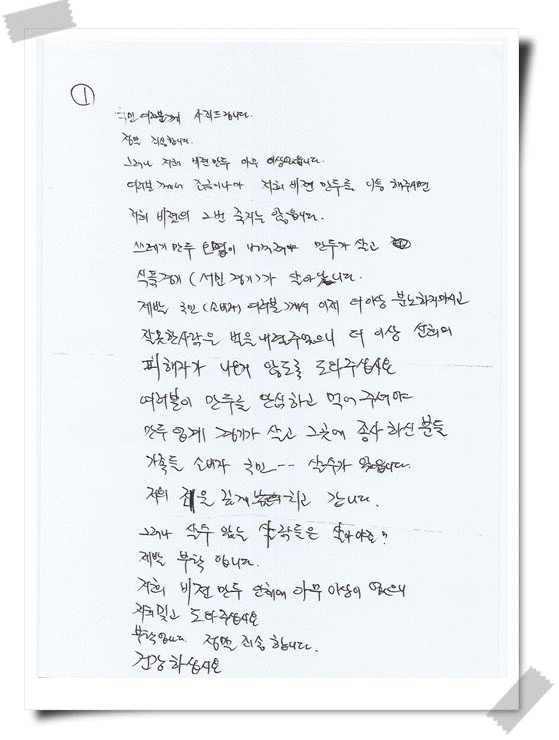 ①
국민 여러분께 사죄드립니다.
정말 죄송합니다.
그러나 저희 비젼 만두 아무 이상없습니다.
여러분께서 조금이나마 저희 비젼 만두를 해주시면
저희 비젼의 죽지는 않습니다.
쓰레기 만두 만두가 살고
(서민경기)가 살아납니다.
제발 국민(소비자) 여러분께서 이제 더이상 분노하지마시고
잘못한사람은 벌을내려주었으니 더 이상 선의의
피해자가 나오지 않도록 도와주십시오
여러분이 만두를 안심하고 먹어 주셔야
만두 업계 경기가 살고 그곳에 종사 하신 분들
가족들 소비자 국민--- 살수가 있읍니다.
저의 길게 치고 갑니다.
그러나 살수 있는 사람들은 살아야죠?
제발 부탁 입니다.
저희 비젼 만두 아무 이상이 없으니
저희믿고 도와주십시오
부탁입니다 정말 죄송 합니다.
건강하십시오